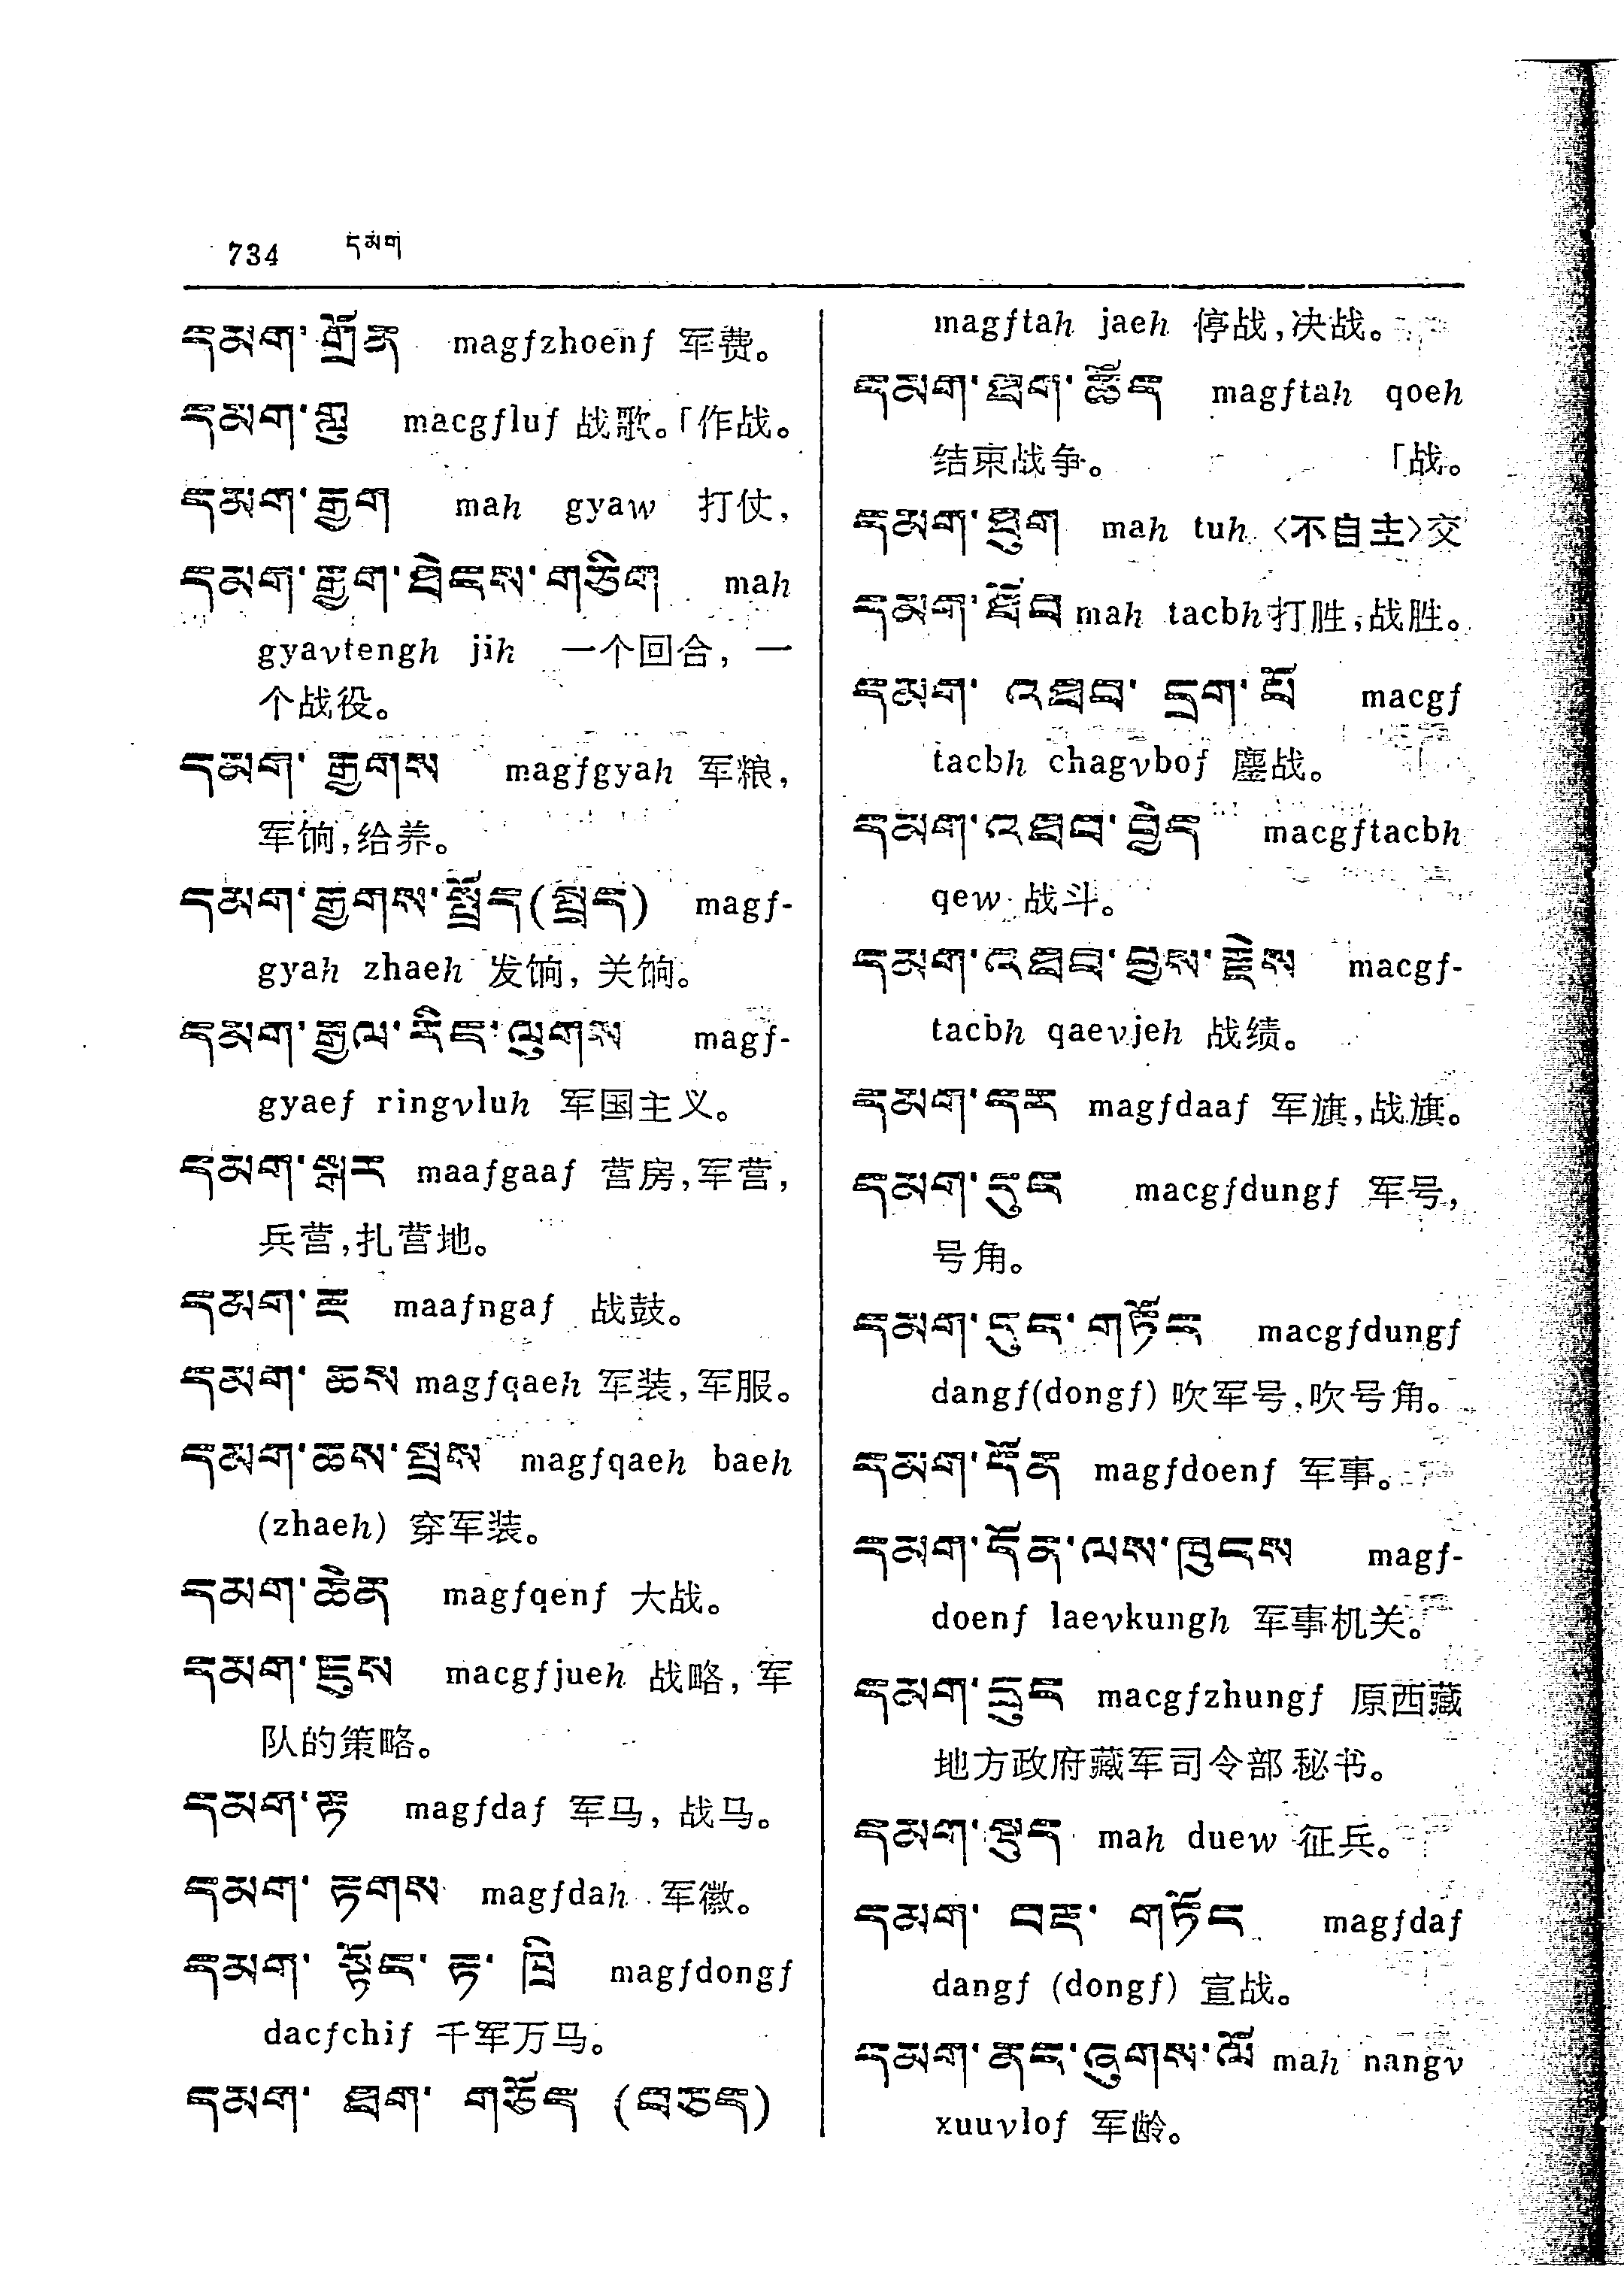 734 དམག
དམག་གྲོན magfzhoenf 军费。
དམག་གླུ macgfluf 战歌。「作战。
དམག་རྒྱག mah gyaw 打仗,
དམག་རྒྱག་ཐེངས་གཅིག mah
gyavtengh jih 一个回合, 一
个战役。
དམག་ རྒྱགས magfgyah 军粮,
军饷,给养。
དམག་རྒྱགས་སྤྲོད(སྤྲད) magf-
gyah zhaeh 发饷, 关饷。
དམག་རྒྱལ་རིང་ལུགས magf-
gyaef ringvluh 军国主义。
དམག་སྒར maafgaaf 营房,军营,
兵营,扎营地。
དམག་རྔ maafngaf 战鼓。
དམག་ ཆས magfqaeh 军装,军服。
དམག་ཆས་སྤྲས magfqaeh baeh
(zhaeh) 穿军装。
དམག་ཆེན magfqenf 大战。
དམག་ཇུས macgfjueh 战略, 军
队的策略。
དམག་རྟ magfdaf 军马, 战马。
དམག་ རྟགས magfdah 军徽。
དམག་ སྟོང་ རྟ་ ཁྲི magfdongf
dacfchif 千军万马。
དམག་ ཐག་ གཅོད (བཅད)
magftah jaeh 停战,决战。
དམག་ཐག་ཆོད magftah qoeh
结束战争。 「战。
དམག་ཐུག mah tuh 〈不自主〉交
དམག་ཐོབ mah tacbh打胜,战胜。
དམག་ འཐབ་ དྲག་པོ macgf
tacbh chagvbof 鏖战。
དམག་འཐབ་བྱེད macgftacbh
qew 战斗。
དམག་འཐབ་བྱས་རྗེས macgf-
tacbh qaevjeh 战绩。
དམག་དར magfdaaf 军旗,战旗。
དམག་དུང macgfdungf 军号,
号角。
དམག་དུང་གཏོང macgfdungf
dangf(dongf) 吹军号,吹号角。
དམག་དོན magfdoenf 军事。
དམག་དོན་ལས་ཁུངས magf-
doenf laevkungh 军事机关。
དམག་དྲུང macgfzhungf 原西藏
地方政府藏军司令部秘书。
དམག་སྡུད mah duew 征兵。
དམག་ བརྡ་ གཏོང magfdaf
dangf (dongf) 宣战。
དམག་ནང་ཞུགས་ལོ mah nangv
xuuvlof 军龄。